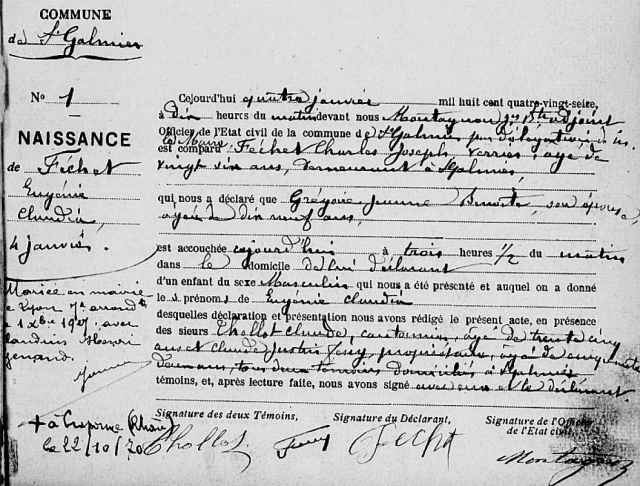 COMMUNE
de St Galmier
No 1
NAISSANCE
de Féchet
Eugénie
Claudia,
4 janvier.
Mariée en mairie
Lyon 7e arrondt
1 Xbre 1917, avec
Henri
+ à Craponne (Rhône)
le 22/10/70
Cejourd'hui quatre janvier mil huit cent quatre-vingt-seize,
à dix heures du matin devant nous Montagnon adjoint
Officier de l'Etat civil de la commune de St Galmier par délégation de M.
le Maire
est comparu Féchet Charles Joseph, verrier, âgé de
vingt six ans, demeurant à St Galmier,
qui nous a déclaré que Grégoire Jeanne Benoite, son épouse,
âgée de dix neuf ans,
est accouchée cejourd'hui à trois heures 1/2 du matin
dans le domicile de lui déclarant
d'un enfant du sexe Masculin qui nous a été présenté et auquel on a donné
le s prénoms de Eugénie Claudia
desquelles déclaration et présentation nous avons rédigé le présent acte, en présence
des sieurs Thollot Claude, cantonnier, âgé de trente cinq
ans et Claude Justin propriétaire, âgé de cinquante
deux ans, tous deux témoins domiciliés à St Galmier
témoins, et, après lecture faite, nous avons signé avec eux et le déclarant
Signature des deux Témoins, Signature du Déclarant, Signature de l'Officier
de l'Etat civil,
Thollot Fechet Montagnon